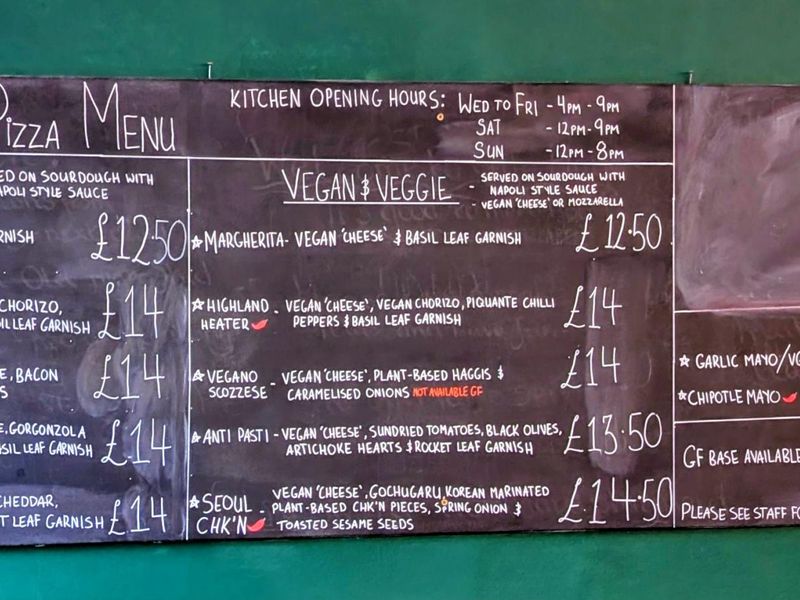 PIZZA MENU
ED ON SOURDOUGH WITH
NAPOLI STYLE SAUCE
RNISH £12.50
CHORIZO,
IL LEAF GARNISH £14
E, BACON
S £14
E, GORGONZOLA
SIL LEAF GARNISH £14
CHEDDAR,
T LEAF GARNISH £14
KITCHEN OPENING HOURS: WED TO FRI - 4PM - 9PM
SAT - 12PM - 9PM
SUN - 12PM - 8PM
VEGAN & VEGGIE - SERVED ON SOURDOUGH WITH
NAPOLI STYLE SAUCE
- VEGAN 'CHEESE' OR MOZZARELLA
☆ MARGHERITA - VEGAN 'CHEESE' & BASIL LEAF GARNISH £12.50
☆ HIGHLAND - VEGAN 'CHEESE', VEGAN CHORIZO, PIQUANTE CHILLI
HEATER PEPPERS & BASIL LEAF GARNISH £14
☆ VEGANO - VEGAN 'CHEESE', PLANT-BASED HAGGIS &
SCOZZESE CARAMELISED ONIONS NOT AVAILABLE GF £14
☆ ANTI PASTI - VEGAN 'CHEESE', SUNDRIED TOMATOES, BLACK OLIVES,
ARTICHOKE HEARTS & ROCKET LEAF GARNISH £13.50
☆ SEOUL - VEGAN 'CHEESE', GOCHUGARU, KOREAN MARINATED
CHK'N PLANT-BASED CHK'N PIECES, SPRING ONION &
TOASTED SESAME SEEDS £14.50
☆ GARLIC MAYO/VG
☆ CHIPOTLE MAYO
GF BASE AVAILABLE
PLEASE SEE STAFF FO